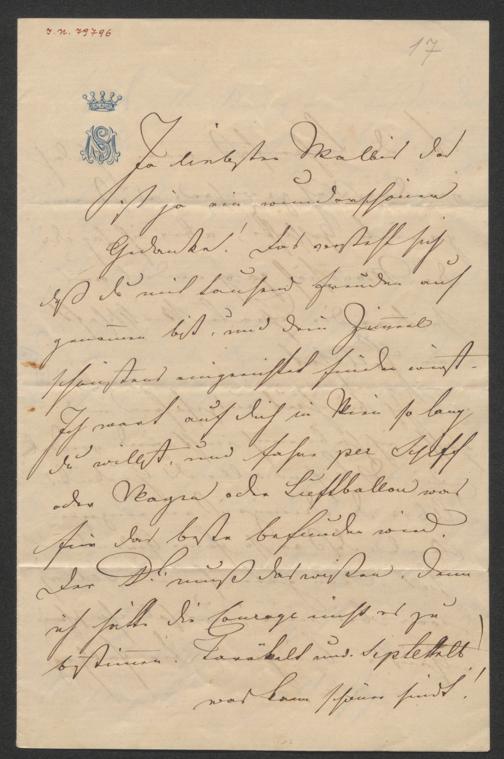 I. N. 79796
17
Ja liebster Malbis das
ist ja ein wunderschöner
Gedanke! Das versteht sich
daß du mit tausend Freuden auf
genomen bist, und dein Zimerl
schönstens eingerichtet finden wirst.
Ich wart auf dich in Wien so lang
du willst, und fahre per Schiff
oder Wagen oder Luftballon was
für das beste befunden wird.
Der Dr. muß das wissen, denn
ich hätte die Courage nicht es zu
bestimmen. und
was kann schöner sind!